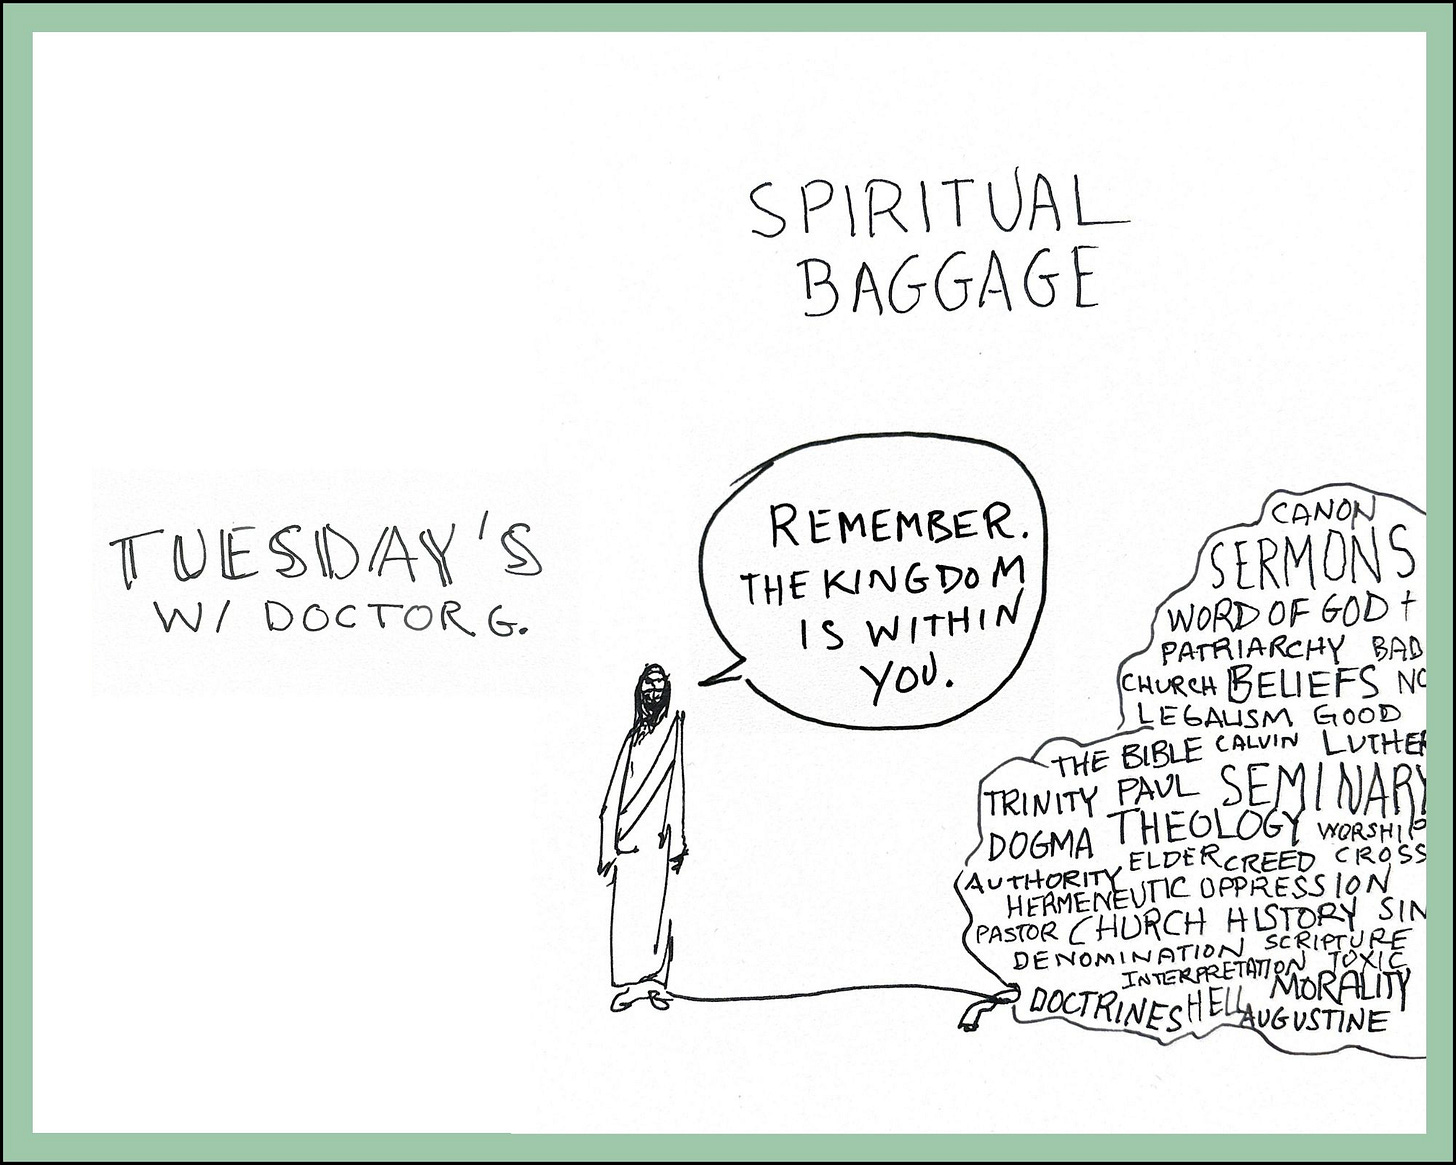 SPIRITUAL
BAGGAGE
TUESDAY'S
W/ DOCTOR G.
REMEMBER.
THE KINGDOM
IS WITHIN
YOU.
CANON
SERMONS
WORD OF GOD †
PATRIARCHY BAD
CHURCH BELIEFS
LEGALISM GOOD
THE BIBLE CALVIN LUTHER
TRINITY PAUL SEMINARY
DOGMA THEOLOGY WORSHIP
ELDER CREED CROSS
AUTHORITY
HERMENEUTIC OPPRESSION
PASTOR CHURCH HISTORY SIN
DENOMINATION SCRIPTURE
INTERPRETATION TOXIC
DOCTRINES HELL MORALITY
AUGUSTINE